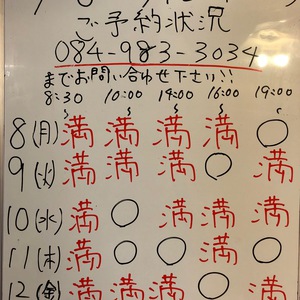 ご予約状況
084-983-3034
までお問い合わせ下さい!!
8:30 10:00 14:00 16:00 19:00
~ ~ ~ ~ ~
8(月) 満 満 満 満 ○
9(火) 満 満 満 ○ 満
10(水) 満 ○ 満 満 満
11(木) 満 ○ ○ 満 ○
12(金) 満 満 満 ○ 満